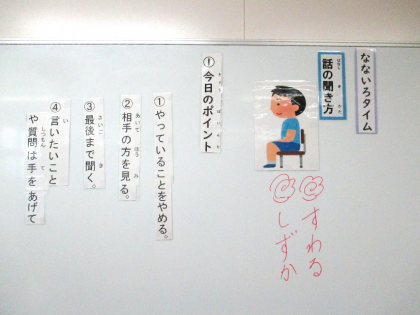 なないろタイム
話の聞き方
すわる
しずか
今日のポイント
①やっていることをやめる。
②相手の方を見る。
③最後まで聞く。
④言いたいこと
や質問は手をあげて